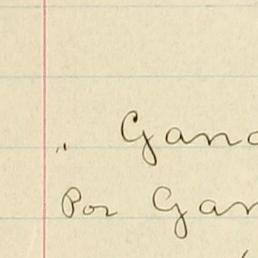 " Gana
Por Gan